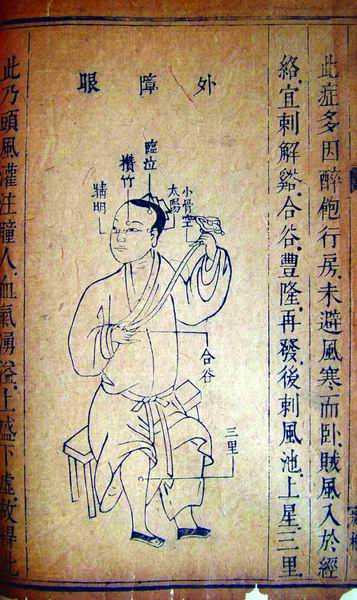 此症多因醉飽行房,未避風寒而臥,賊風入於經
絡,宜刺解谿、合谷、豐隆,再發,後刺風池、上星、三里.
外障眼
小骨空
太陽
臨泣
攢竹
睛明
合谷
三里
此乃頭風灌注瞳人,血氣湧溢,上盛下虛,故